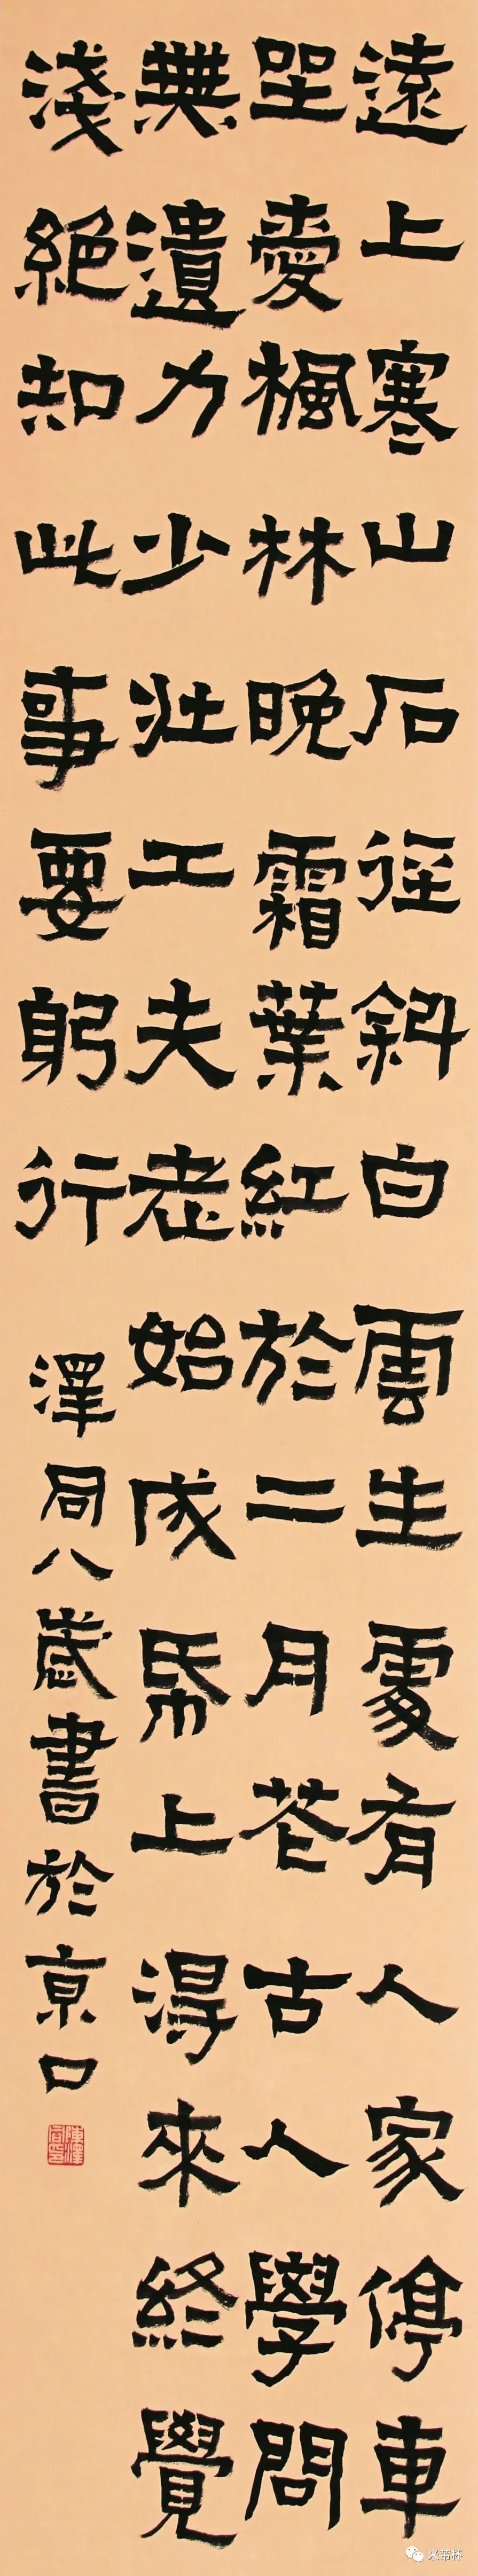 遠上寒山石徑斜白雲生處有人家停車
坐愛楓林晚霜葉紅於二月花古人學問
無遺力少壯工夫老始成帋上得來終覺
淺絕知此事要躬行
澤同八歲書於京口
米芾杯